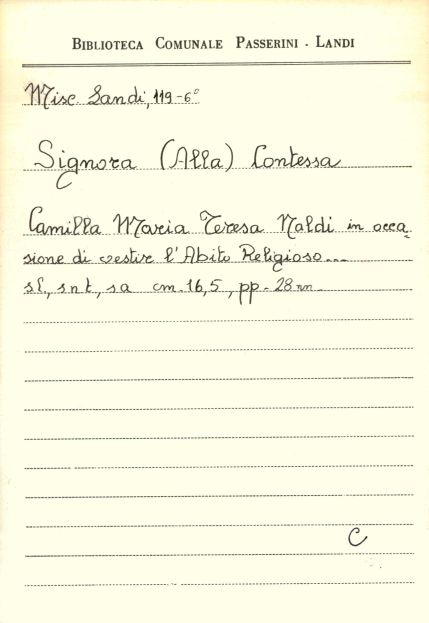 BIBLIOTECA COMUNALE PASSERINI - LANDI
Misc. Landi, 119-6°
Signora (Alla) Contessa
Camilla Maria Teresa Naldi in occa-
sione di vestir l'Abito Religioso...
s.l., s n t, s a cm. 16,5, pp. 28 nn.
C